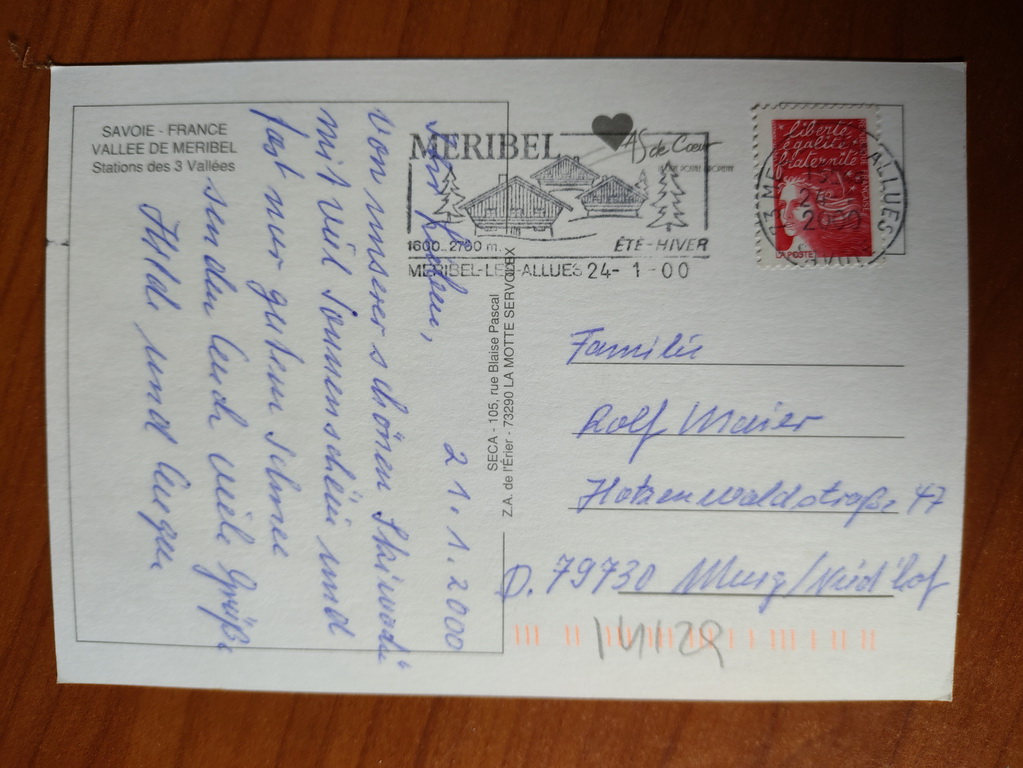 SAVOIE - FRANCE
VALLEE DE MERIBEL
Stations des 3 Vallées
21.1.2000
Ihr Lieben,
von unserer schönen Skiwoche
mit viel Sonnenschein und
fast nur gutem Schnee
senden Euch viele Grüße
Hilde und Eugen
SECA - 105, rue Blaise Pascal
Z.A. de l'Érier - 73290 LA MOTTE SERVOLEX
MERIBEL
AS de Cœur
1600..2700 m.
ÉTÉ-HIVER
MERIBEL-LES-ALLUES 24-1-00
liberté
égalité
fraternité
LA POSTE
ALLUES
24
2000
Familie
Rolf Maier
Hotzenwaldstraße 47
D. 79730 Murg/Nied'hof